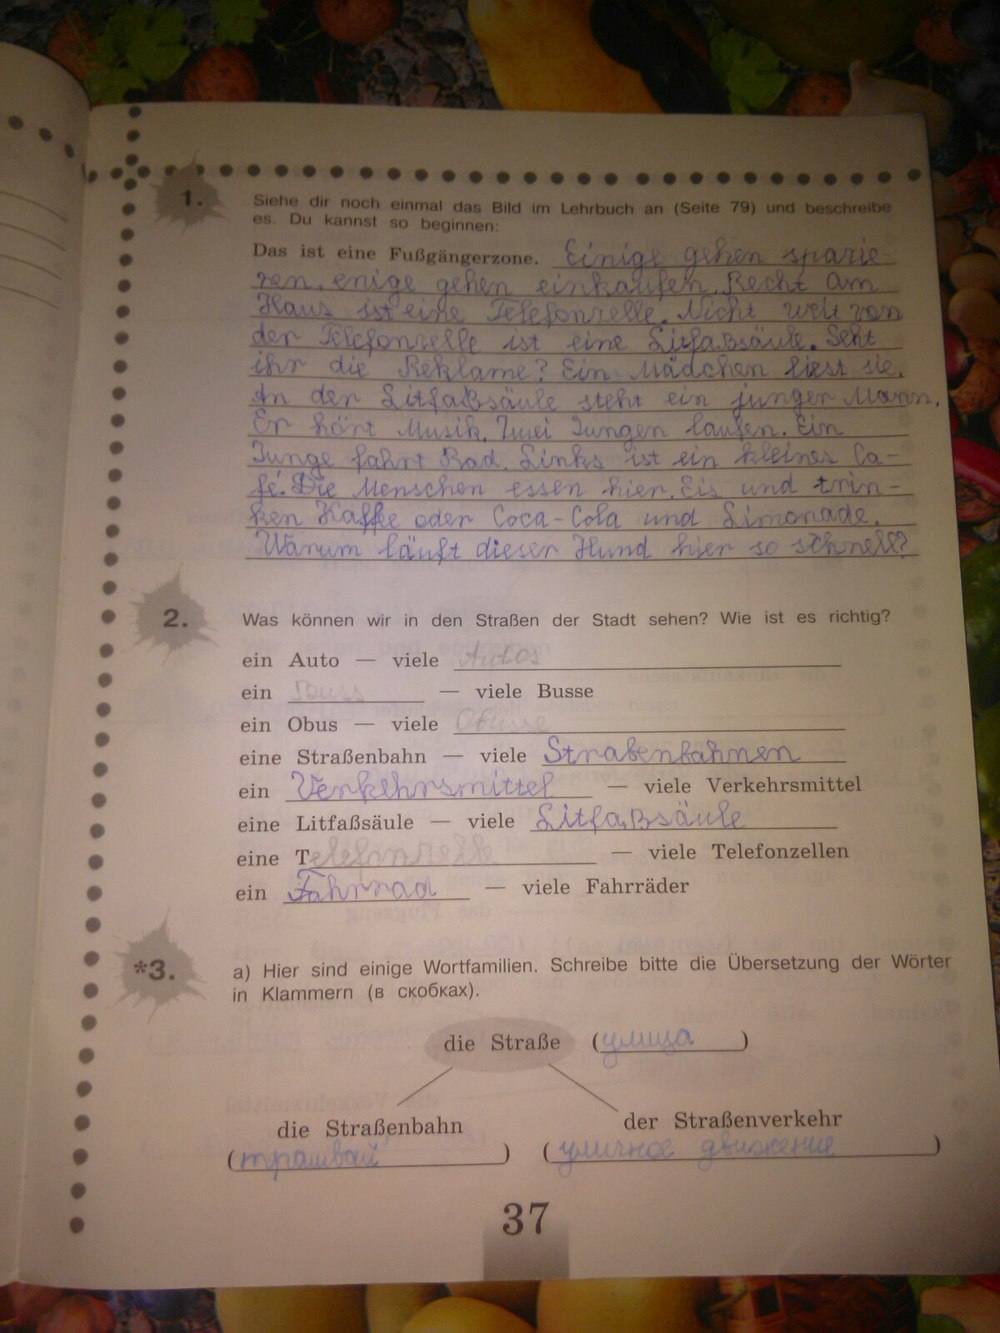 1.
Siehe dir noch einmal das Bild im Lehrbuch an (Seite 79) und beschreibe
es. Du kannst so beginnen:
Das ist eine Fußgängerzone. Einige gehen spazie-
ren, enige gehen einkaufen. Recht am
Haus ist eine Telefonzelle. Nicht weit von
der Telefonzelle ist eine Litfaßsäule. Seht
ihr die Reklame? Ein Mädchen liest sie.
An der Litfaßsäule steht ein junger Mann.
Er hört Musik. Zwei Jungen laufen. Ein
Junge fahrt Rad. Links ist ein kleines Ca-
fé. Die Menschen essen hier Eis und trin-
ken Kaffke oder Coca-Cola und Limonade.
Warum läuft dieser Hund hier so schnell?
2.
Was können wir in den Straßen der Stadt sehen? Wie ist es richtig?
ein Auto — viele Autos
ein Buss — viele Busse
ein Obus — viele Obusse
eine Straßenbahn — viele Straßenbahnen
ein Verkehrsmittel — viele Verkehrsmittel
eine Litfaßsäule — viele Litfaßsäule
eine Telefonzelle — viele Telefonzellen
ein Fahrrad — viele Fahrräder
*3.
a) Hier sind einige Wortfamilien. Schreibe bitte die Übersetzung der Wörter
in Klammern (в скобках).
die Straße (улица)
die Straßenbahn
der Straßenverkehr
(трамвай)
(уличное движение)
37